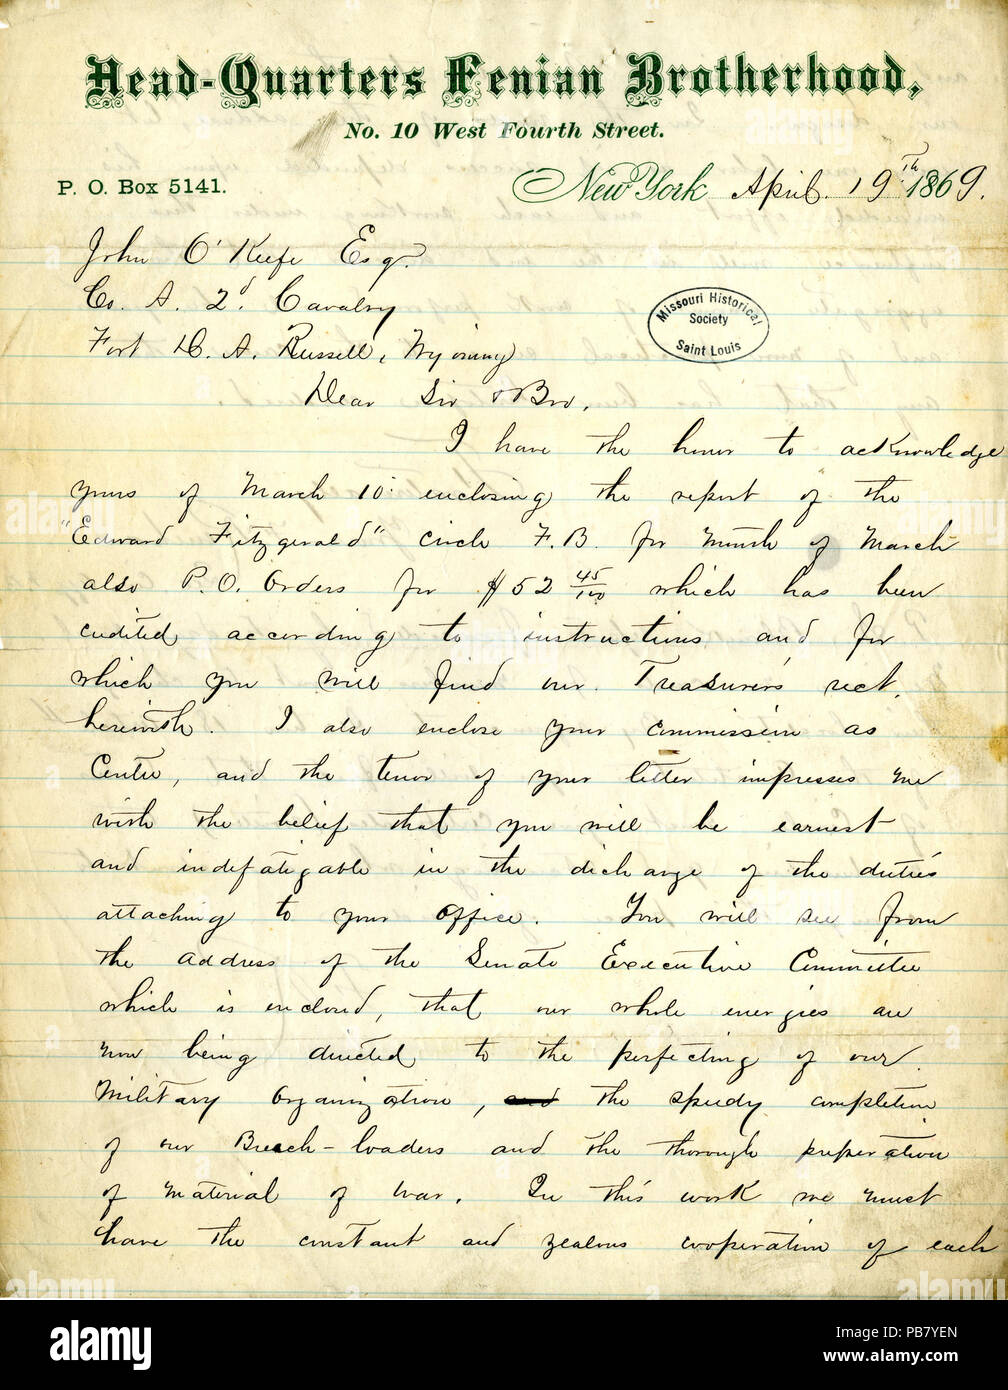 Head-Quarters Fenian Brotherhood,
No. 10 West Fourth Street.
P. O. Box 5141.
New York April. 19.th 1869.
John O'Keefe Esq.
Co. A. 2d. Cavalry
Fort D. A. Russell, Wyoming
Missouri Historical
Society
Saint Louis
Dear Sir & Bro,
I have the honor to acknowledge
yours of March 10. enclosing the report of the
"Edward Fitzgerald" circle F.B. for month of March
also P.O. Orders for $52 45/100 which has been
credited according to instructions and for
which you will find our Treasurer's rect.
herewith. I also enclose your commission as
Centre, and the tenor of your letter impresses me
with the belief that you will be earnest
and indefatigable in the dicharge of the duties
attaching to your office. You will see from
the address of the Senate Executive Committee
which is enclosed, that our whole energies are
now being directed to the perfecting of our
Military Organization, and the speedy completion
of our Breech-loaders and the thorough preperation
of material of war. In this work we must
have the constant and zealous cooperation of each
alamy
alamy
Image ID: PB7YEN
www.alamy.com